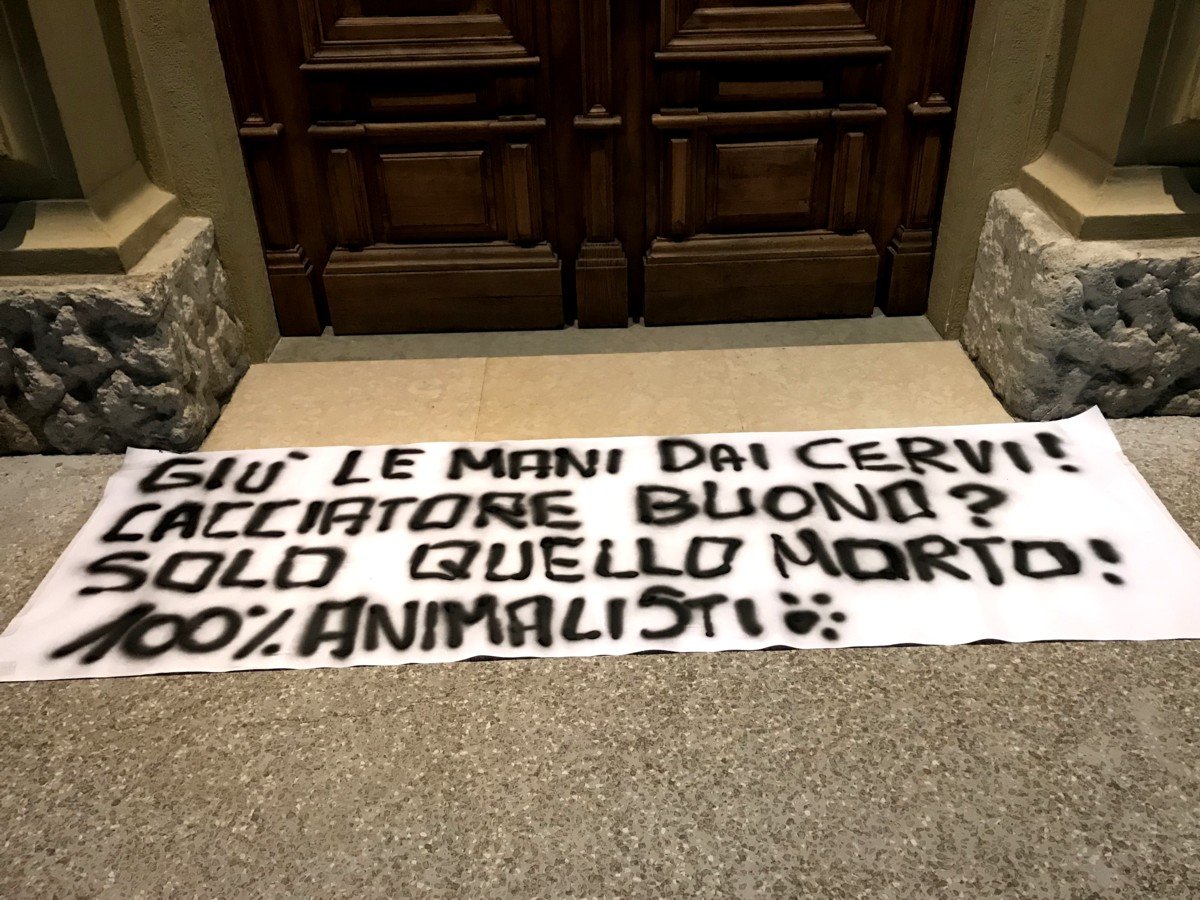 GIU' LE MANI DAI CERVI!
CACCIATORE BUONO?
SOLO QUELLO MORTO!
100% ANIMALISTI